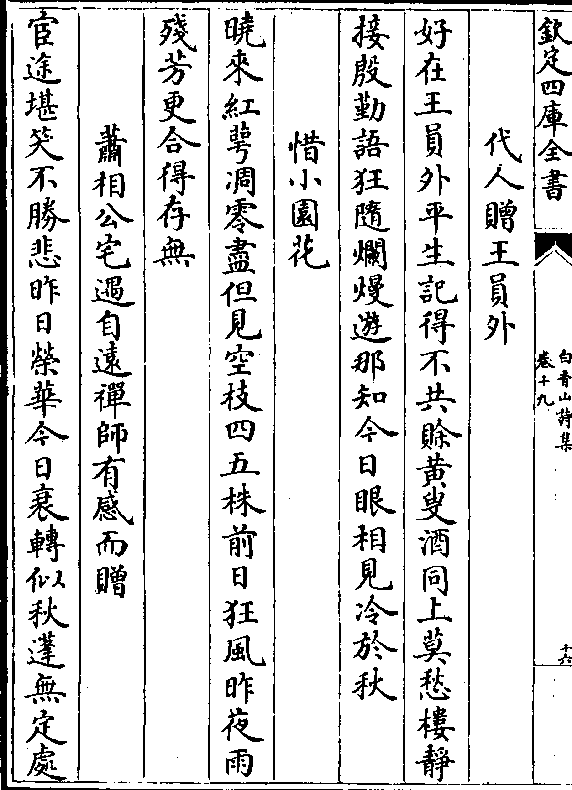 欽定四庫全書
白香山詩集
卷十九
十六
代人贈王員外
好在王員外平生記得不共賒黄叟酒同上莫愁樓靜
接殷勤語狂隨爛熳遊那知今日眼相見冷於秋
惜小園花
曉來紅萼凋零盡但見空枝四五株前日狂風昨夜雨
殘芳更合得存無
蕭相公宅遇自遠禪師有感而贈
宦途堪笑不勝悲昨日榮華今日衰轉似秋蓬無定處